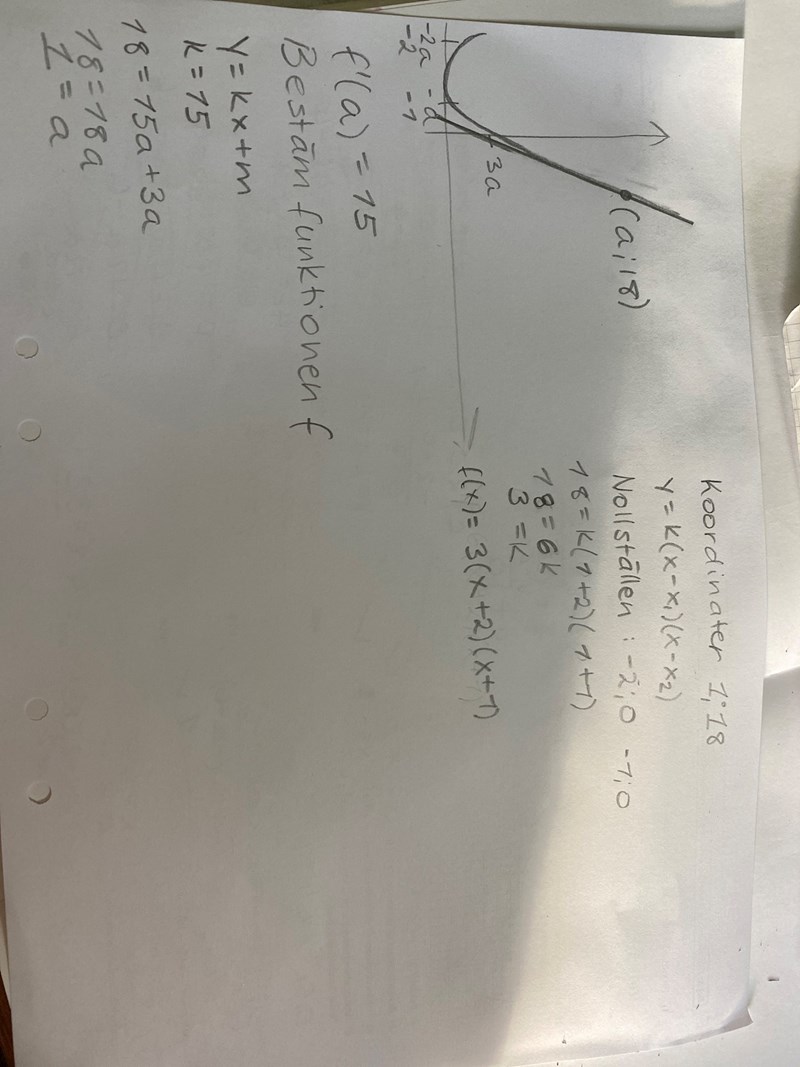 (a;18)
3a
-2a -a
-2 -1
f'(a) = 15
Bestäm funktionen f
y = kx+m
k = 15
18 = 15a + 3a
18 = 18a
1 = a
Koordinater 1;18
y = k(x-x₁)(x-x₂)
Nollställen : -2;0 -1;0
18 = k(1+2)(1+1)
18 = 6k
3 = k
f(x) = 3(x+2)(x+1)